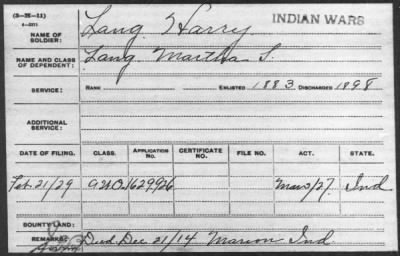 (3-M-11)
INDIAN WARS
NAME OF SOLDIER: Lang Harry
NAME AND CLASS OF DEPENDENT: Lang Martha S.
SERVICE: RANK ENLISTED 1883 DISCHARGED 1898
ADDITIONAL SERVICE:
DATE OF FILING. CLASS. APPLICATION NO. CERTIFICATE NO. FILE NO. ACT. STATE.
Feb. 21/29 1629926 Mar 3/27. Ind
BOUNTY LAND:
REMARKS: Died Dec 21/14 Marion Ind.